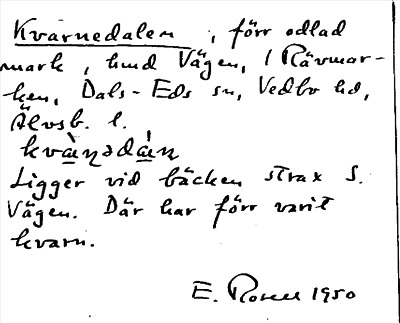 Kvarnedalen, förr odlad
mark, hmd Vägen, i Rävmar-
ken, Dals-Eds sn, Vedbo hd,
Älvsb. l.
kvàṇədáṇ
Ligger vid bäcken strax S.
Vägen. Där har förr varit
kvarn.
E. Rosell 1950